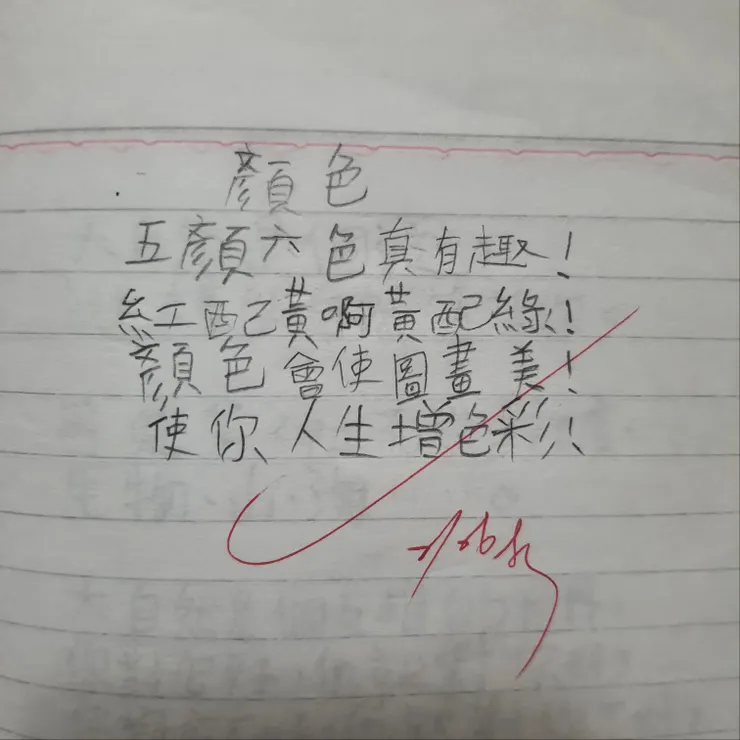 顏色
五顏六色真有趣!
紅配黃啊黃配綠!
顏色會使圖畫美!
使你人生增色彩!